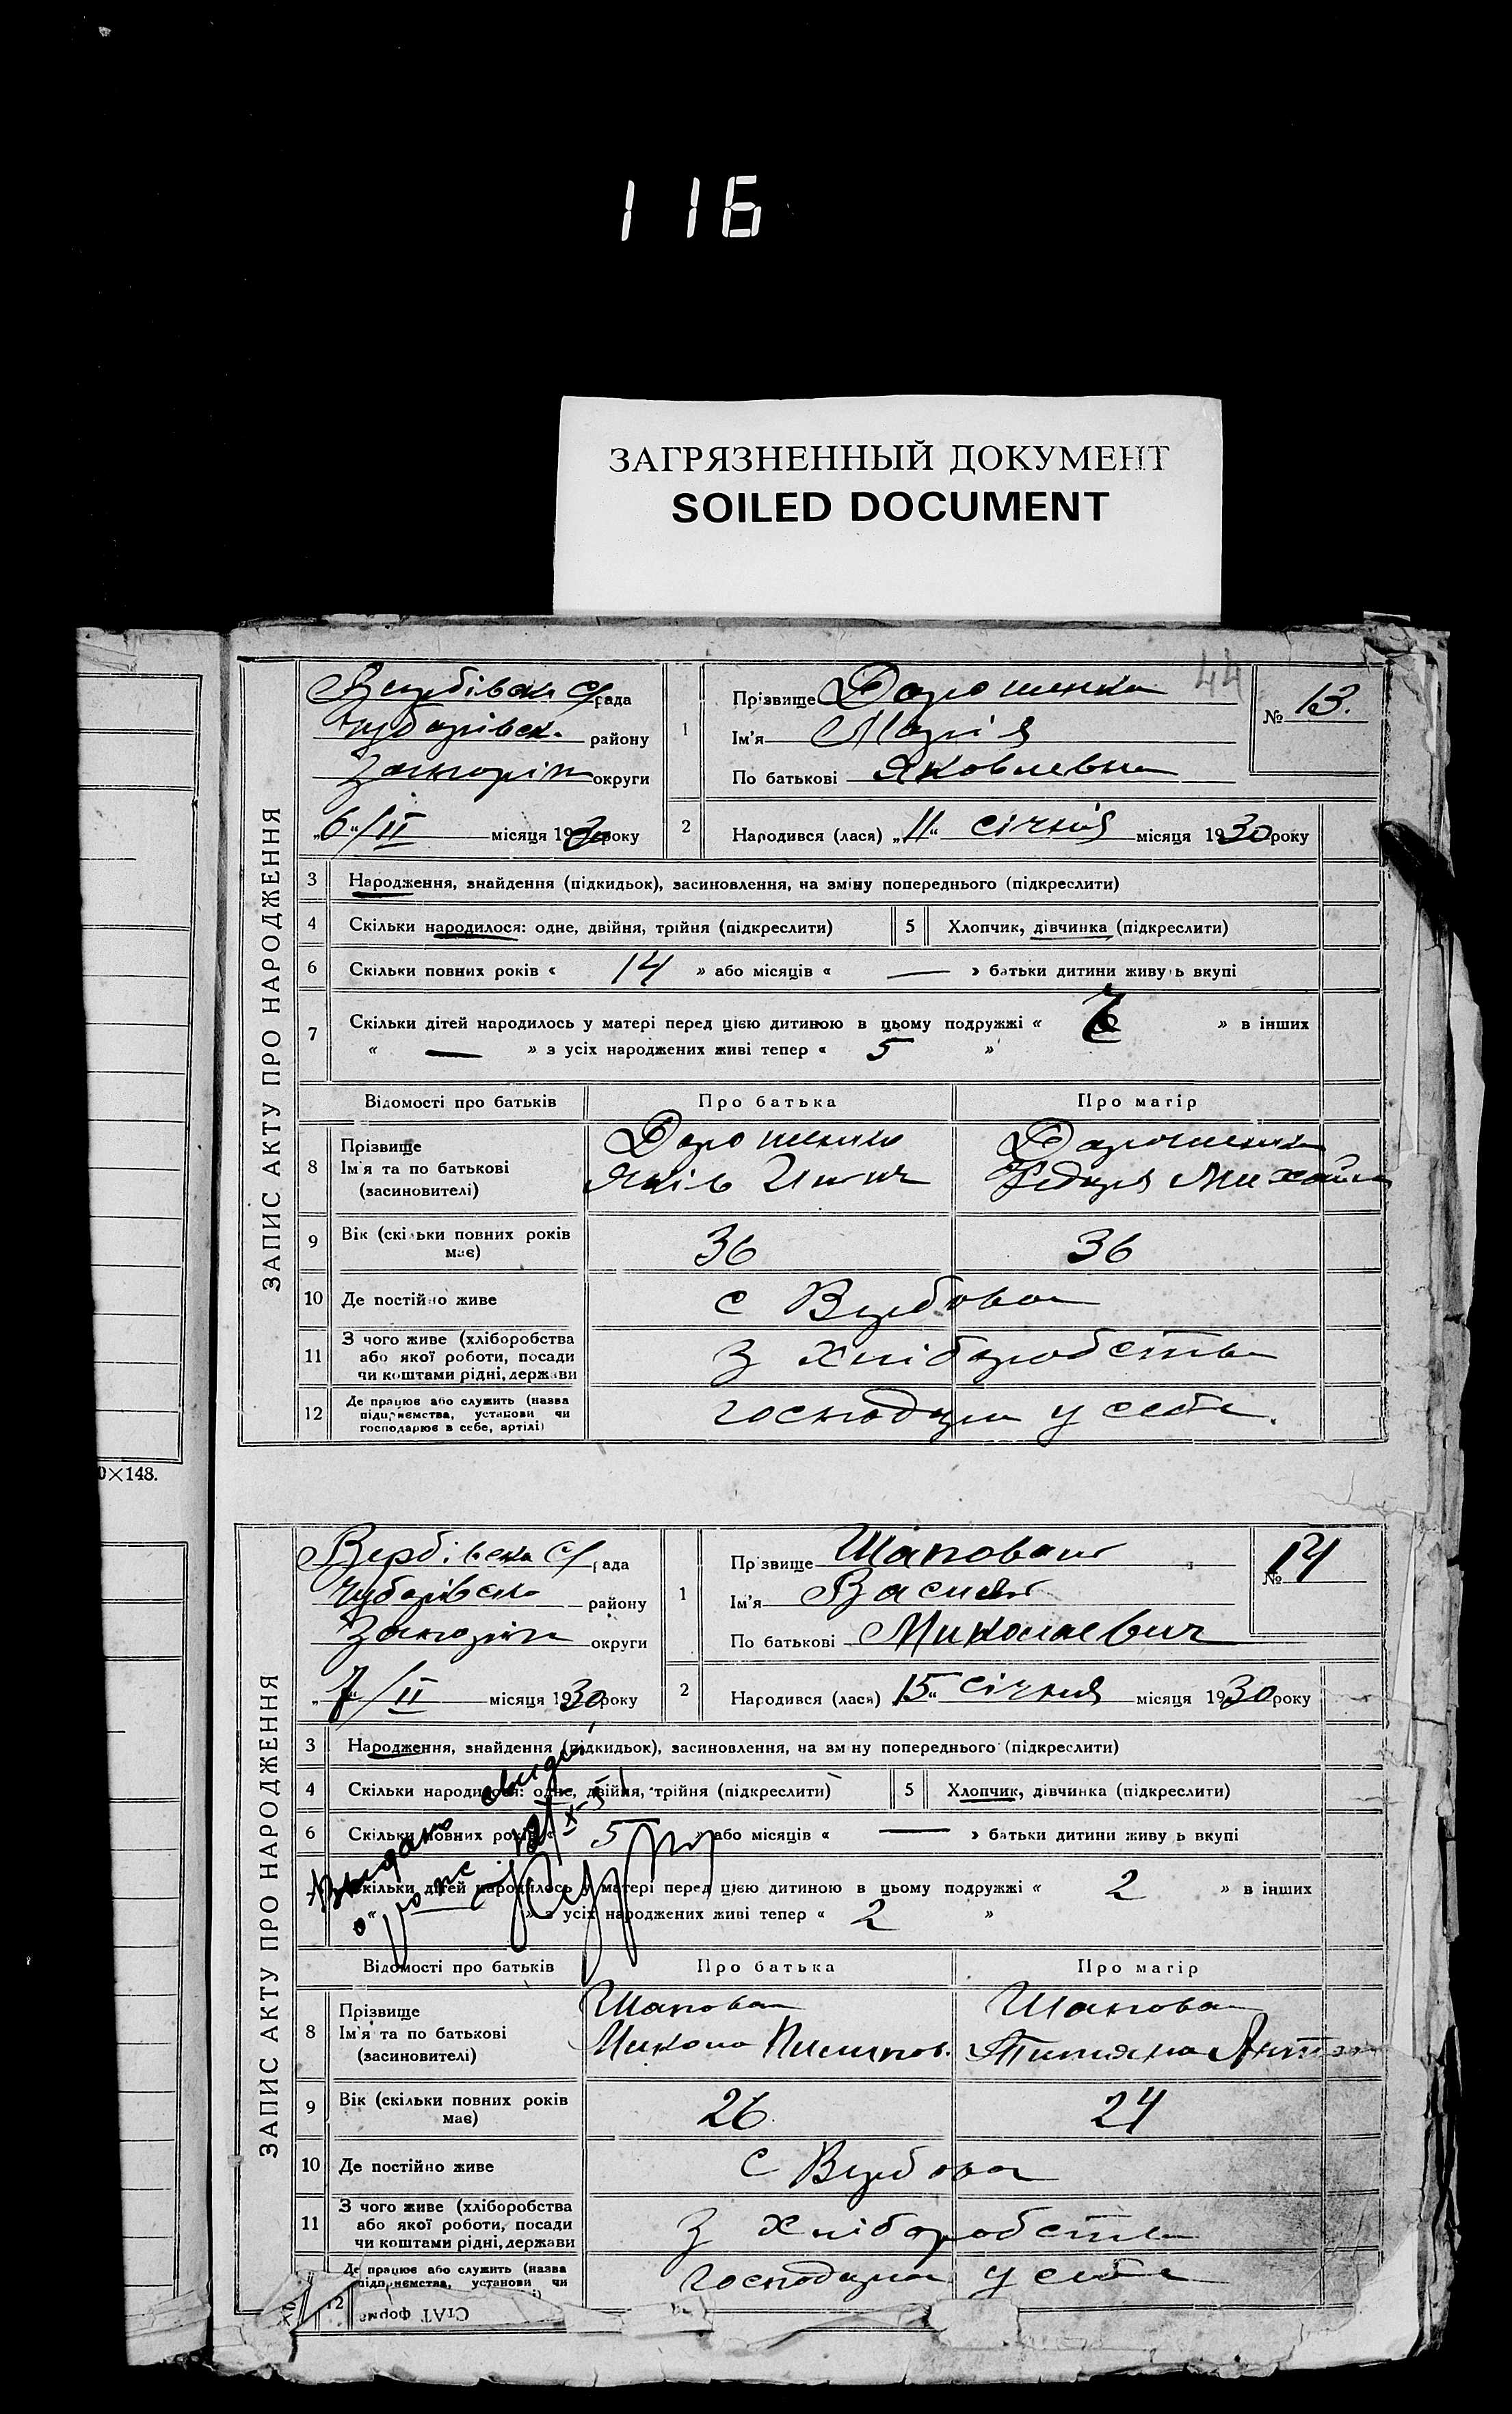 116
ЗАГРЯЗНЕННЫЙ ДОКУМЕНТ
SOILED DOCUMENT
44
ЗАПИС АКТУ ПРО НАРОДЖЕННЯ
Вербівськ С/рада
Чубарівск. району
Запоріж округи
„6“/II місяця 1930 року
1
Прізвище Дорошенко
Ім'я Марія
По батькові Яковлевна
№ 13.
2 Народився (лася) „11“ січня місяця 1930 року
3 Народження, знайдення (підкидьок), засиновлення, на зміну попереднього (підкреслити)
4 Скільки народилося: одне, двійня, трійня (підкреслити) 5 Хлопчик, дівчинка (підкреслити)
6 Скільки повних років « 14 » або місяців « — » батьки дитини живуть вкупі
7 Скільки дітей народилось у матері перед цією дитиною в цьому подружжі « » в інших
« — » з усіх народжених живі тепер « 5 »
Відомості про батьків Про батька Про матір
8 Прізвище
Ім'я та по батькові
(засиновителі)
Дорошенко
Яків
Дорошенко
Федора Михайл
9 Вік (скільки повних років має) 36 36
10 Де постійно живе с Вербова
11 З чого живе (хліборобства
або якої роботи, посади
чи коштами рідні, держави
З хліборобства
12 Де працює або служить (назва
підприємства, установи чи
господарює в себе, артілі)
господарш у себе.
0×148.
ЗАПИС АКТУ ПРО НАРОДЖЕННЯ
Вербівськ С/рада
Чубарівськ району
Запоріж округи
„7“/II місяця 1930 року
1
Прізвище Шаповал
Ім'я Василь
По батькові Миколаевич
№ 14
2 Народився (лася) 15“ січня місяця 1930 року
3 Народження, знайдення (підкидьок), засиновлення, на зміну попереднього (підкреслити)
4 Скільки народилося: одне, двійня, трійня (підкреслити) 5 Хлопчик, дівчинка (підкреслити)
6 Скільки повних років « 5 » або місяців « — » батьки дитини живуть вкупі
7 Скільки дітей народилось у матері перед цією дитиною в цьому подружжі « 2 » в інших
« — » з усіх народжених живі тепер « 2 »
Відомості про батьків Про батька Про матір
8 Прізвище
Ім'я та по батькові
(засиновителі)
Шаповал
Микола Пилипов.
Шаповал
Титяна Антон
9 Вік (скільки повних років має) 26 24
10 Де постійно живе с Вербова
11 З чого живе (хліборобства
або якої роботи, посади
чи коштами рідні, держави
З хліборобства
12 Де працює або служить (назва
підприємства, установи чи
господарш у себе
СтАТ форма